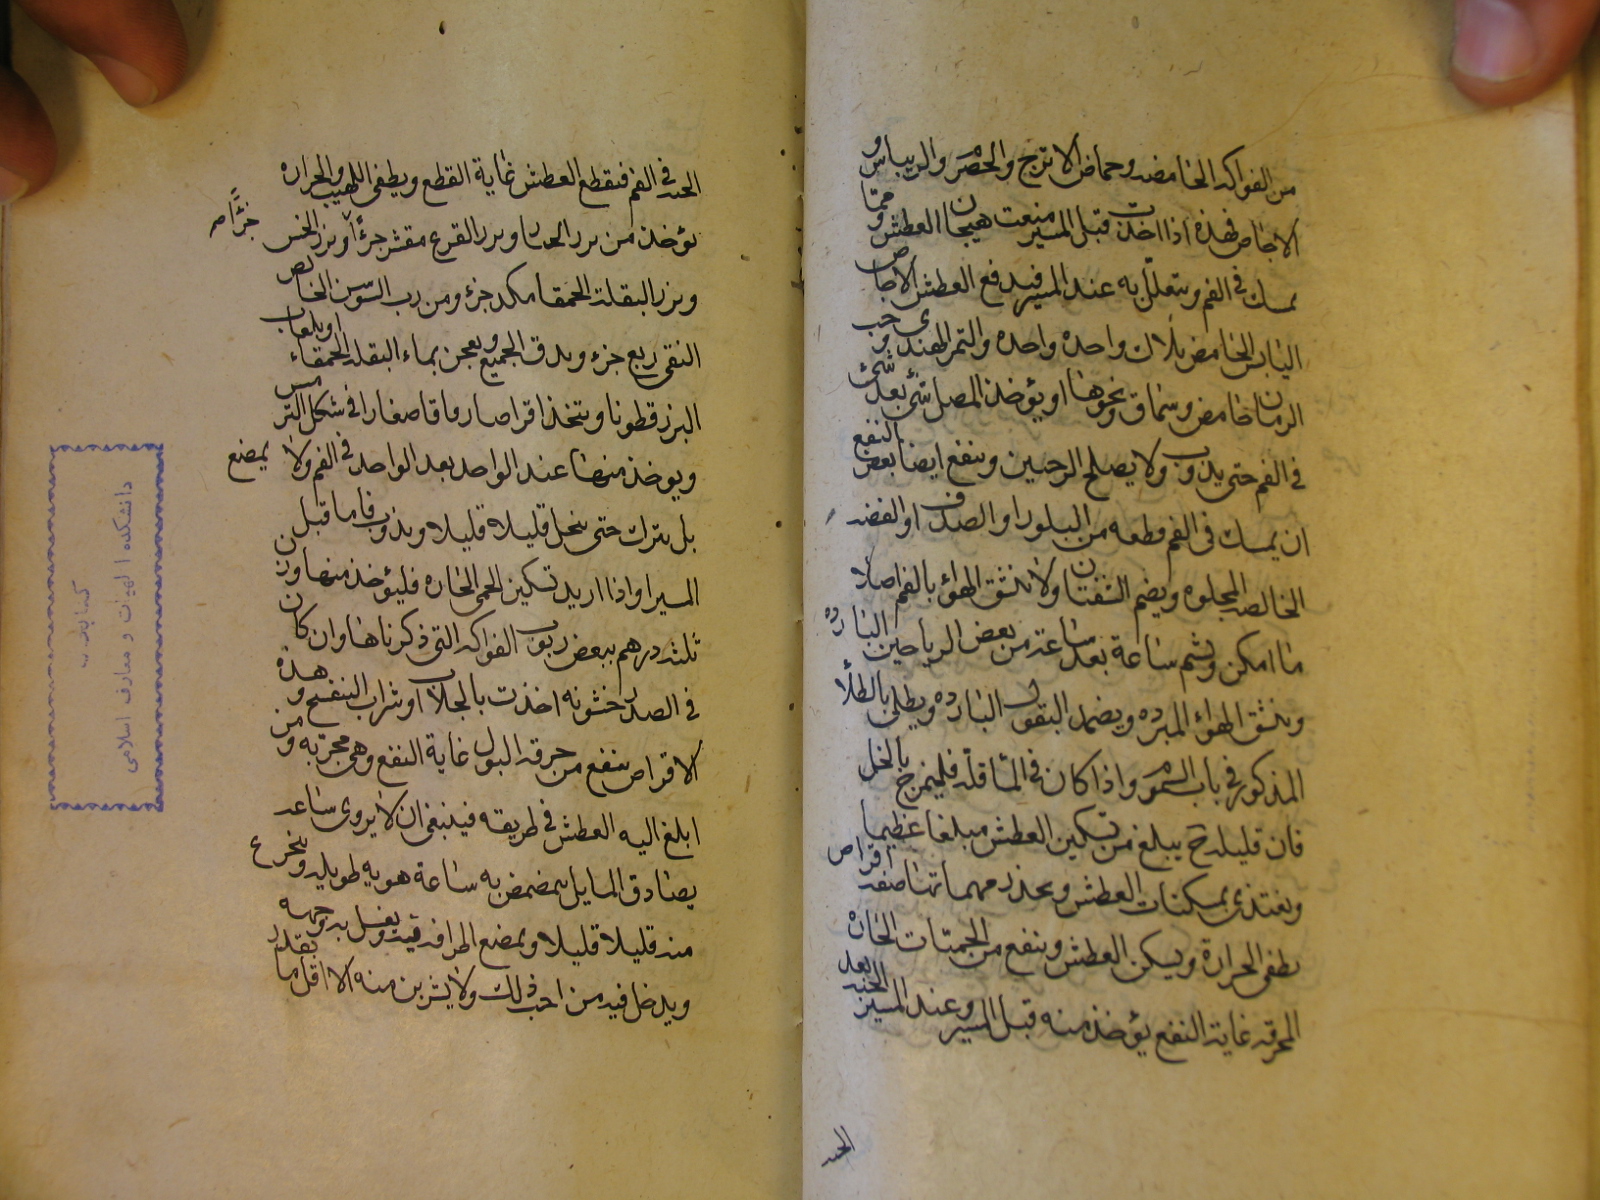 من الفواكه الحامضه وحماض الاترج والحصرم والريباس و
الاجاص فهذه اذا اخذت قبل المسير منعت هيجان العطش ومما
يمسك في الفم ويتعلل به عند المسير فيدفع العطش الاجاص
اليابس الحامض يلاك واحده واحده والتمر الهندى وحب
الرمان حامض وسماق ونحوها او يؤخذ المصل شئ بعد شئ
في الفم حتى يذوب ولا يصلح الرحبين وينفع ايضا بعض النفع
ان يمسك في الفم قطعه من البلور او الصدف او الفضه
الخالصه المجلوه ويضم الشفتان ولا تنشق الهواء بالفم اصلا
ما امكن ويشم ساعة بعد ساعة من بعض الرياحين البارده
وينشق الهواء المبرده ويضمد البقول البارده ويطلى بالطلاء
المذكور في باب السموم واذا كان في الماء قلة فليمزج بالخل
فان قليله ح يبلغ من تسكين العطش مبلغا عظيما
ويغتذى بمسكنات العطش ويحذر مهما تها صفه اقراص
يطفى الحرارة ويسكن العطش وينفع من الحميات الحاره
المحرقه غاية النفع يؤخذ منه قبل المسير وعند المسير بعد الحبه
الحبه
الحبه في الفم فيقطع العطش غاية القطع ويطفى اللهيب والحراره
يؤخذ من بزر الخيار وبزر القرع مقشر جزءا وبزر الخس جزءا صح
وبزر البقلة الحمقا مكد جزء ومن رب السوس الخالص
النقى ربع جزء ويدق الجميع ويعجن بماء البقله الحمقاء او بلعاب
البزر قطونا ويتخذ اقراصا رقاقا صغارا في شكل الترمس
ويوخذ منها عند الواحد بعد الواحد في الفم ولا يمضغ
بل يترك حتى ينحل قليلا قليلا ويذوب فاما قبل
المسير او اذا اريد تسكين الحمى الحاره فليؤخذ منها وزن
ثلثه درهم ببعض ربوب الفواكه التى ذكرناها وان كان
في الصدر خشونه اخذت بالجلاب او شراب البنفسج وهذه
الاقراص ينفع من حرقه البول غاية النفع وهى مجربه ومن
ابلغ اليه العطش في طريقه فينبغى ان لا يروى ساعه
يصادق المايل يتمضمض به ساعة هويه طويله ويتجرع
منه قليلا قليلا ويمضغ اطرافه فيه ويغسل به وجهه
ويدخل فيه من احب ذلك ولا يشربن منه الا اقل ما بقدر
كتابخانه
دانشكده الهيات و معارف اسلامى